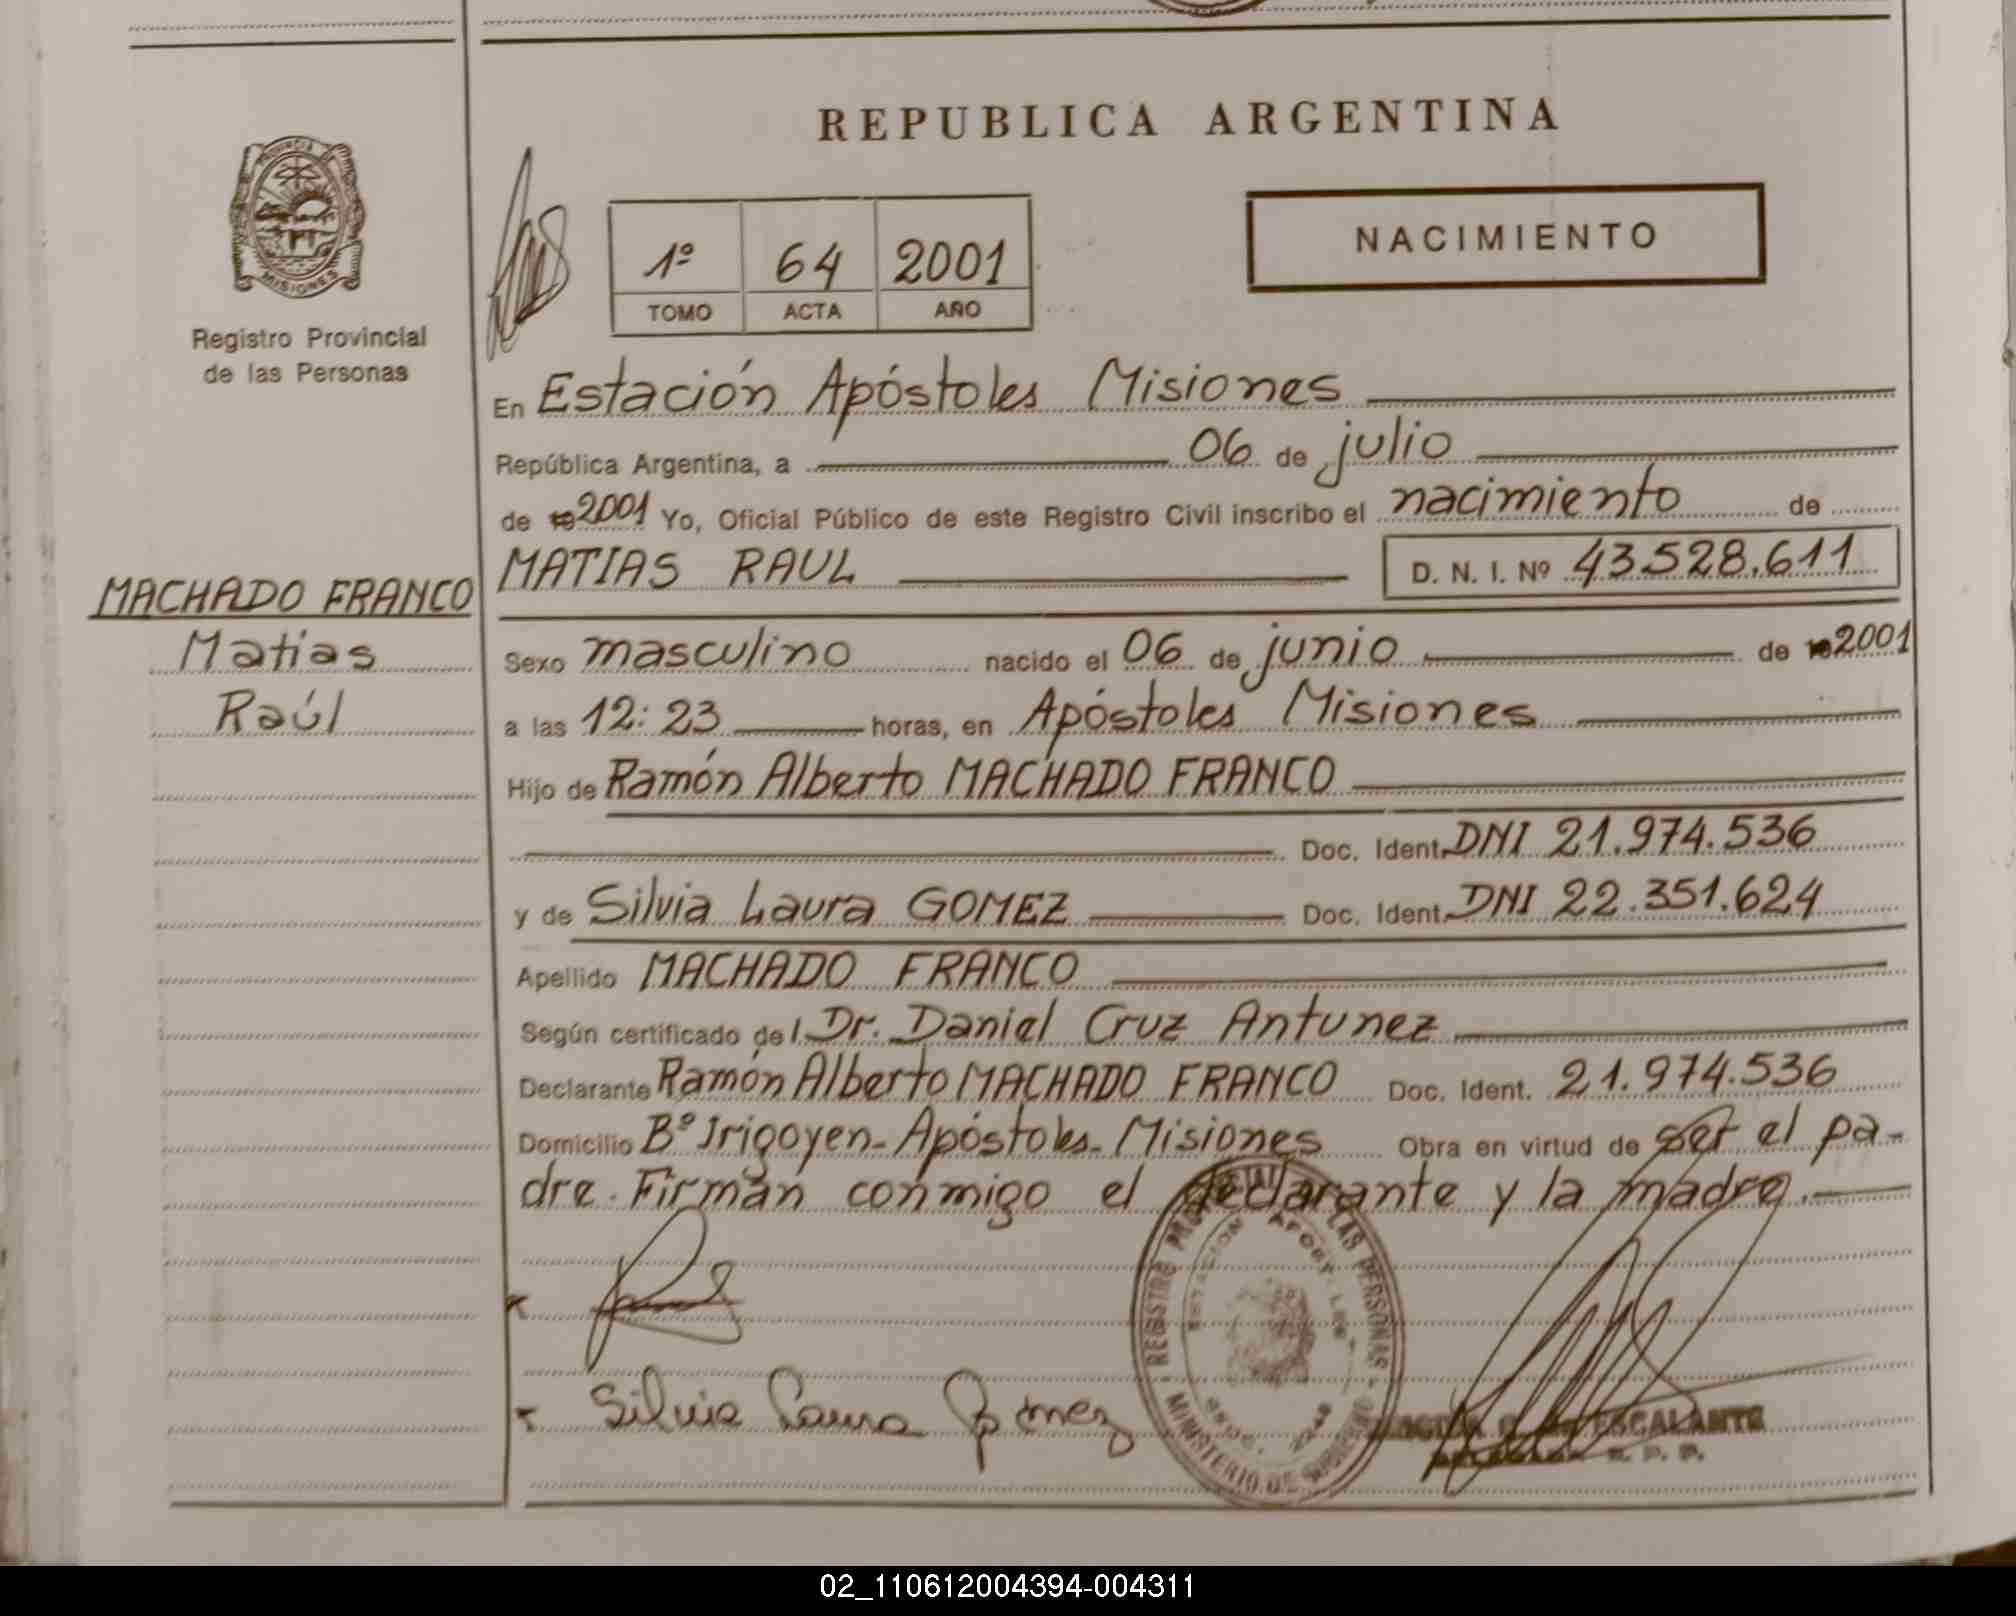 REPUBLICA ARGENTINA
PROVINCIA
MISIONES
Registro Provincial
de las Personas
1º 64 2001
TOMO ACTA AÑO
NACIMIENTO
En Estación Apóstoles Misiones
República Argentina, a 06 de julio
de 19 2001 Yo, Oficial Público de este Registro Civil inscribo el nacimiento de
MATIAS RAUL D. N. I. Nº 43.528.611
MACHADO FRANCO
Matías
Raúl
Sexo masculino nacido el 06 de junio de 19 2001
a las 12:23 horas, en Apóstoles Misiones
Hijo de Ramón Alberto MACHADO FRANCO
Doc. Ident. DNI 21.974.536
y de Silvia Laura GOMEZ Doc. Ident. DNI 22.351.624
Apellido MACHADO FRANCO
Según certificado del Dr. Daniel Cruz Antunez
Declarante Ramón Alberto MACHADO FRANCO Doc. Ident. 21.974.536
Domicilio Bº Irigoyen - Apóstoles - Misiones Obra en virtud de ser el pa-
dre. Firman conmigo el declarante y la madre.
REGISTRO PROVINCIAL DE LAS PERSONAS
ESTACION APOSTOLES
MINISTERIO DE GOBIERNO
Silvia Laura Gómez
ESCALANTE
R. P. P.
02_110612004394-004311